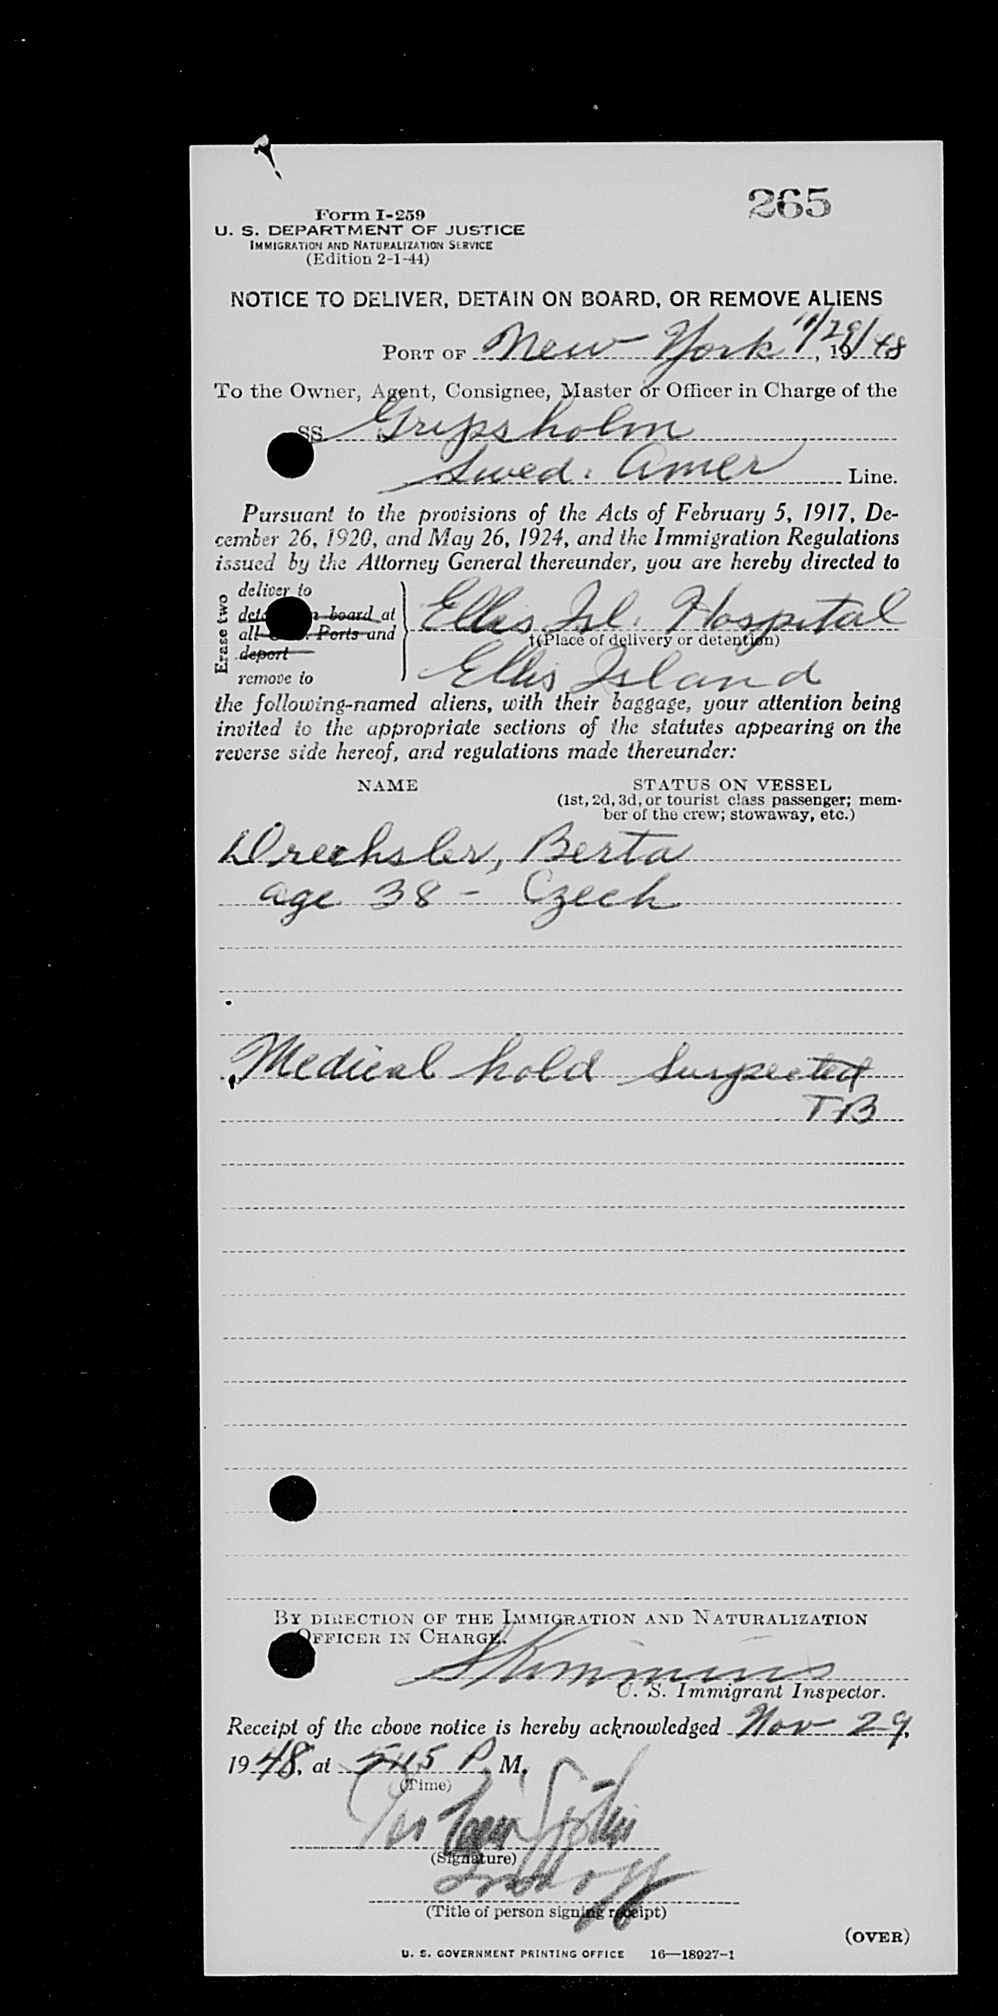 265
Form I-259
U. S. DEPARTMENT OF JUSTICE
IMMIGRATION AND NATURALIZATION SERVICE
(Edition 2-1-44)
NOTICE TO DELIVER, DETAIN ON BOARD, OR REMOVE ALIENS
PORT OF New York 11/29/, 19 48
To the Owner, Agent, Consignee, Master or Officer in Charge of the
SS Gripsholm
Swed. Amer Line.
Pursuant to the provisions of the Acts of February 5, 1917, De-
cember 26, 1920, and May 26, 1924, and the Immigration Regulations
issued by the Attorney General thereunder, you are hereby directed to
Erase two
deliver to
board at
all Ports and
deport
remove to
Ellis Isl. Hospital
†(Place of delivery or detention)
Ellis Island
the following-named aliens, with their baggage, your attention being
invited to the appropriate sections of the statutes appearing on the
reverse side hereof, and regulations made thereunder:
NAME STATUS ON VESSEL
(1st, 2d, 3d, or tourist class passenger; mem-
ber of the crew; stowaway, etc.)
Drechsler, Berta
age 38 - Czech
Medical hold suspected
TB
BY DIRECTION OF THE IMMIGRATION AND NATURALIZATION
OFFICER IN CHARGE.
U. S. Immigrant Inspector.
Receipt of the above notice is hereby acknowledged Nov 29,
1948, at 545 P M.
(Time)
(Signature)
(Title of person signing receipt)
(OVER)
U. S. GOVERNMENT PRINTING OFFICE 16—18927-1